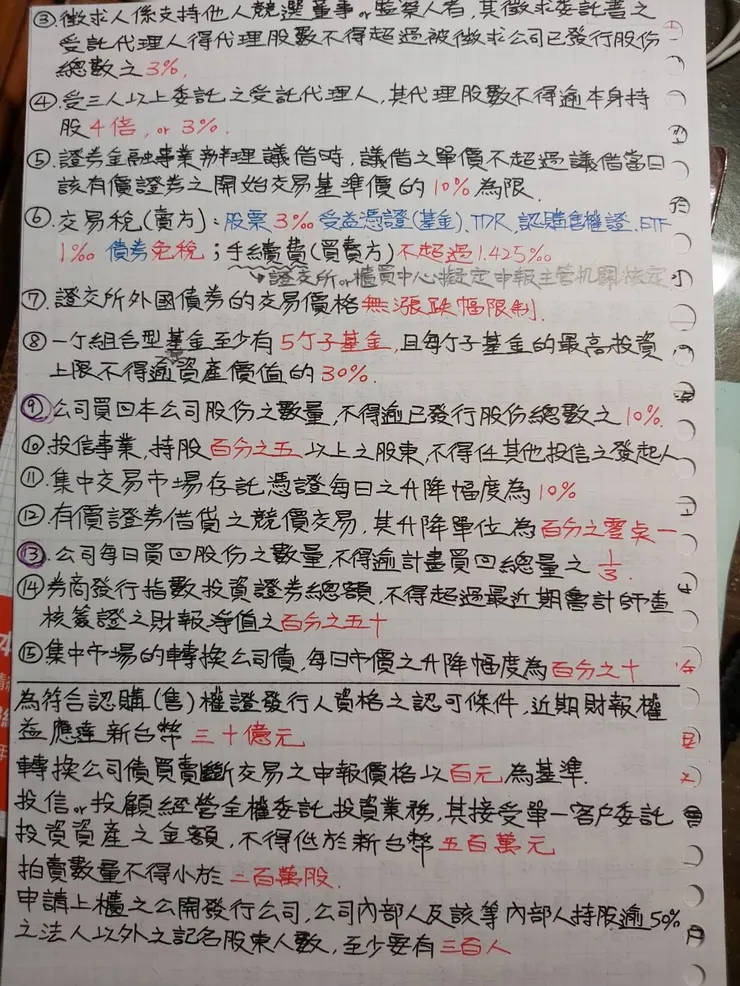 ③.徵求人係支持他人競選董事or監察人者,其徵求委託書之
受託代理人得代理股數不得超過被徵求公司已發行股份
總數之3%.
④.受三人以上委託之受託代理人,其代理股數不得逾本身持
股4倍, or 3%.
⑤.證券金融事業辦理議借時,議借之單價不超過議借當日
該有價證券之開始交易基準價的10%為限.
⑥.交易稅(賣方):股票3‰受益憑證(基金).TDR.認購售權證.ETF
1‰ 債券免稅;手續費(買賣方)不超過1.425‰
證交所or櫃買中心擬定申報主管机關核定.
⑦.證交所外國債券的交易價格無漲跌幅限制.
⑧.一个組合型基金至少有5个子基金,且每个子基金的最高投資
上限不得逾資產價值的30%.
⑨.公司買回本公司股份之數量,不得逾已發行股份總數之10%.
⑩.投信事業,持股百分之五以上之股東,不得任其他投信之發起人
⑪.集中交易市場存託憑證每日之升降幅度為10%
⑫.有價證券借貸之競價交易,其升降單位為百分之零點一
⑬.公司每日買回股份之數量,不得逾計畫買回總量之1/3.
⑭.券商發行指數投資證券總額,不得超過最近期會計師查
核簽證之財報淨值之百分之五十
⑮.集中市場的轉換公司債,每日市價之升降幅度為百分之十
為符合認購(售)權證發行人資格之認可條件,近期財報權
益應達新台幣三十億元
轉換公司債買賣斷交易之申報價格以百元為基準.
投信or投顧經營全權委託投資業務,其接受單一客戶委託
投資資產之金額,不得低於新台幣五百萬元
拍賣數量不得小於二百萬股.
申請上櫃之公開發行公司,公司內部人及該等內部人持股逾50%
之法人以外之記名股東人數,至少要有三百人